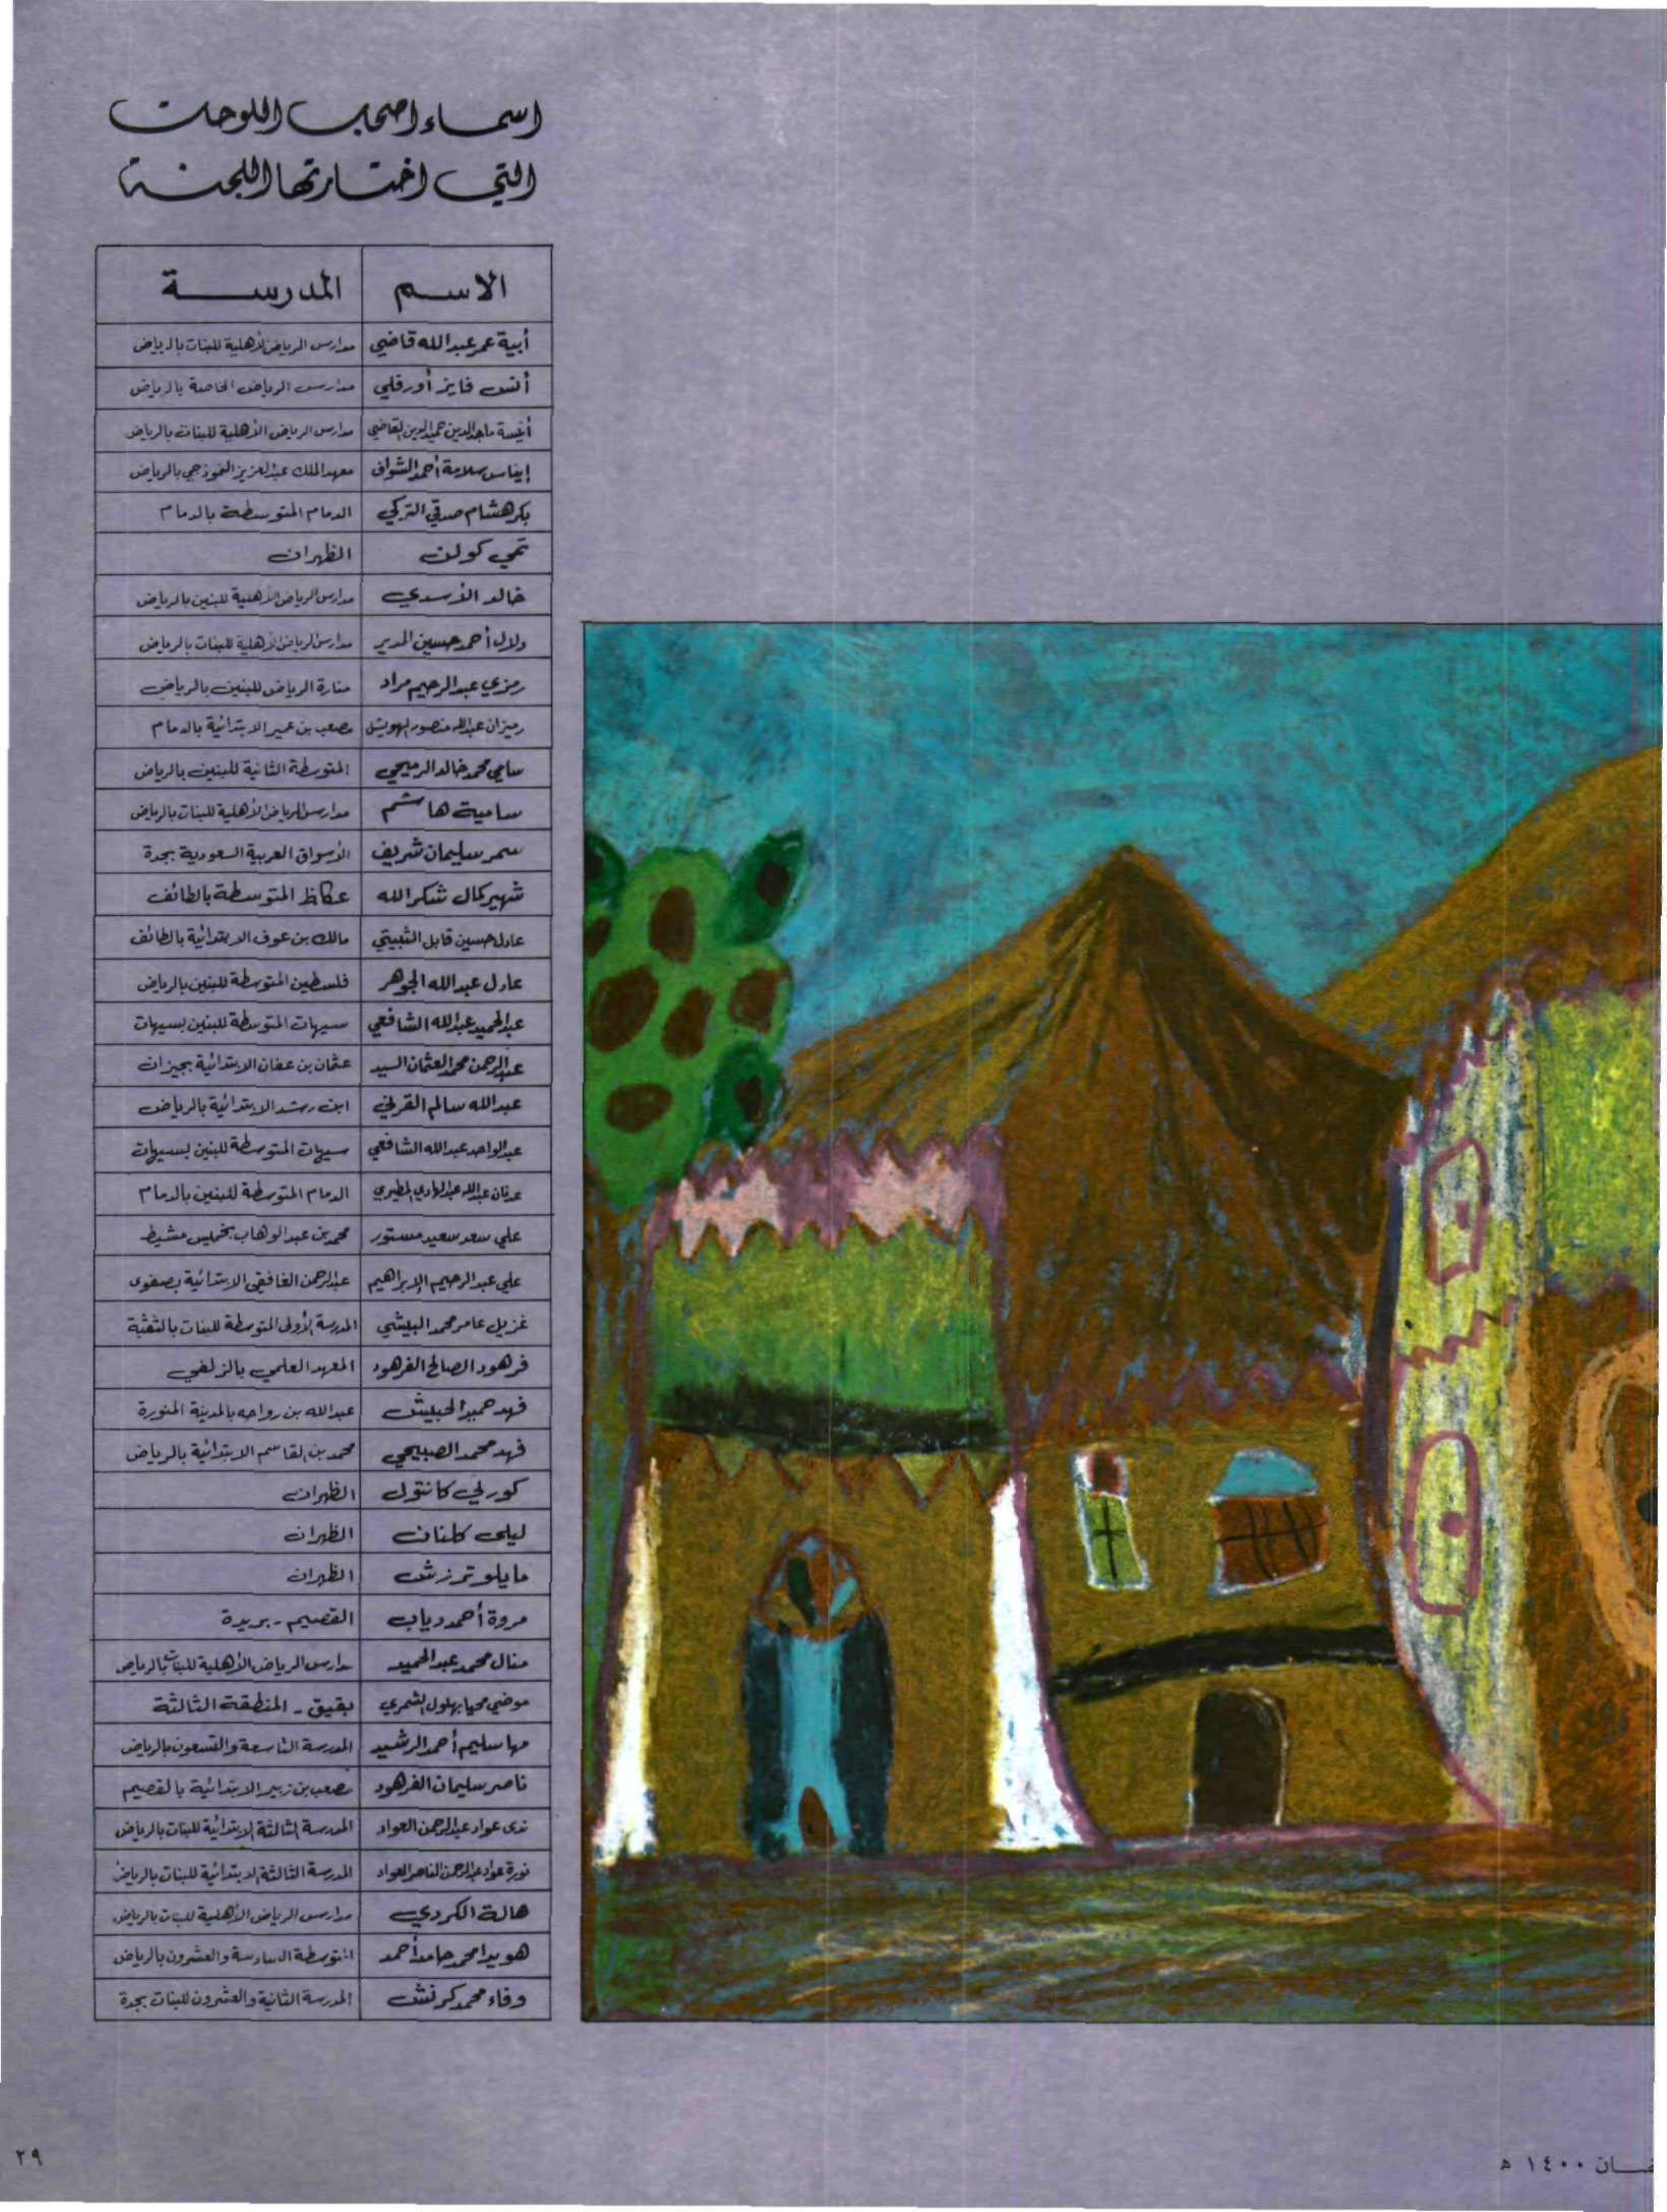 اسماء اصحاب اللوحات
التي اختارتها اللجنة
الاسم المدرسة
أبية عمر عبدالله قاضي مدارس الرياض الأهلية للبنات بالرياض
أنس فايز أورقلي مدارس الرياض الخاصة بالرياض
أنيسة ماجدالدين حميدالدين القاضي مدارس الرياض الأهلية للبنات بالرياض
إيناس سلامة أحمد الشواف معهد الملك عبدالعزيز النموذجي بالرياض
بكر هشام صدقي التركي الدمام المتوسطة بالدمام
تمي كولن الظهران
خالد الأسدي مدارس الرياض الأهلية للبنين بالرياض
دلال أحمد حسين المدير مدارس الرياض الأهلية للبنات بالرياض
رمزي عبدالرحيم مراد منارة الرياض للبنين بالرياض
رميزان عبدالله منصور الهويشل مصعب بن عمير الابتدائية بالدمام
سامي محمد خالد الرميحي المتوسطة الثانية للبنين بالرياض
سامية هاشم مدارس الرياض الأهلية للبنات بالرياض
سمر سليمان شريف الأسواق العربية السعودية بجدة
شهير كمال شكرالله عكاظ المتوسطة بالطائف
عادل حسين قابل الثبيتي مالك بن عوف الابتدائية بالطائف
عادل عبدالله الجوهر فلسطين المتوسطة للبنين بالرياض
عبدالحميد عبدالله الشافعي سيهات المتوسطة للبنين بسيهات
عبدالرحمن محمد العثمان السيد عثمان بن عفان الابتدائية بجيزان
عبدالله سالم القرني ابن رشد الابتدائية بالرياض
عبدالواحد عبدالله الشافعي سيهات المتوسطة للبنين بسيهات
عدنان عبدالله عبدالهادي المطيري الدمام المتوسطة للبنين بالدمام
علي سعد سعيد مستور محمد بن عبدالوهاب بخميس مشيط
علي عبدالرحيم الإبراهيم عبدالرحمن الغافقي الابتدائية بصفوى
غزيل عامر محمد البيشي المدرسة الأولى المتوسطة للبنات بالثقبة
فرهود الصالح الفرهود المعهد العلمي بالزلفي
فهد حميد الحبيش عبدالله بن رواحه بالمدينة المنورة
فهد محمد الصبيحي محمد بن القاسم الابتدائية بالرياض
كورلي كانتول الظهران
ليلى كلنان الظهران
مايلو ترزش الظهران
مروة أحمد دياب القصيم - بريدة
منال محمد عبدالحميد مدارس الرياض الأهلية للبنات بالرياض
موضي محيا بهلول الشمري بقيق - المنطقة الثالثة
مها سليم أحمد الرشيد المدرسة التاسعة والتسعون بالرياض
ناصر سليمان الفرهود مصعب بن زبير الابتدائية بالقصيم
ندى عواد عبدالرحمن العواد المدرسة الثالثة الابتدائية للبنات بالرياض
نورة عواد عبدالرحمن الناصر العواد المدرسة الثالثة الابتدائية للبنات بالرياض
هالة الكردي مدارس الرياض الأهلية للبنات بالرياض
هويدا محمد حامد أحمد المتوسطة السادسة والعشرون بالرياض
وفاء محمد كرنش المدرسة الثانية والعشرون للبنات بجدة
١٤٠٠ ه
٢٩